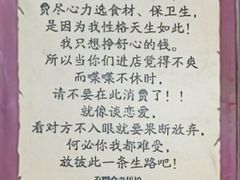 费尽心力选食材、保卫生，
是因为我性格天生如此！
我只想挣舒心的钱。
所以当你们进店觉得不爽
而喋喋不休时，
请不要在此消费了！！
就像谈恋爱，
看对方不入眼就要果断放弃，
何必你我都难受，
放彼此一条生路吧！